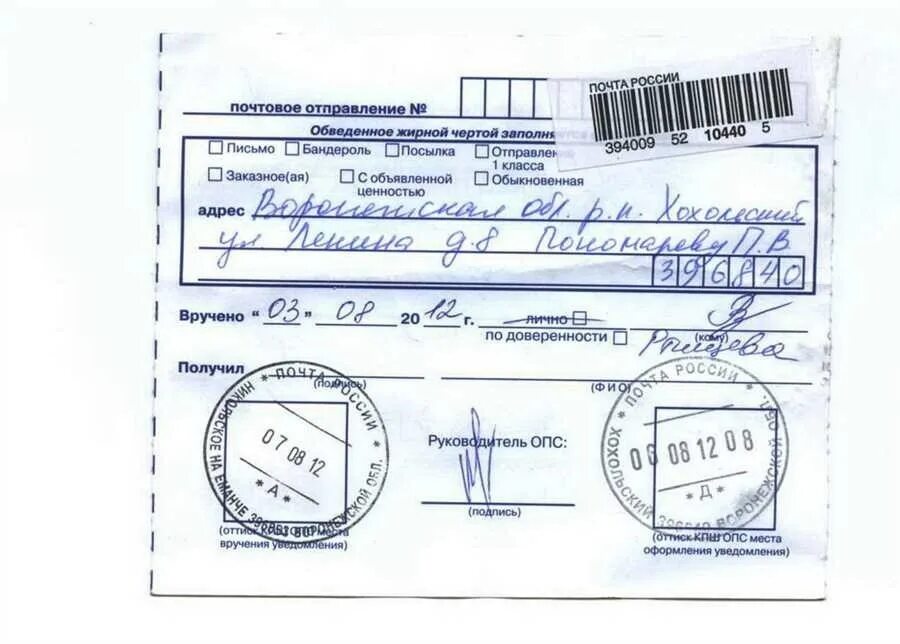 ПОЧТА РОССИИ
394009 52 10440 5
почтовое отправление №
Обведенное жирной чертой заполня
Письмо Бандероль Посылка Отправлен
1 класса
Заказное(ая) С объявленной ценностью Обыкновенная
адрес Воронежская обл. р.п. Хохольский
ул Ленина д.8 Пономареву П.В.
396840
Вручено "03" 08 2012 г. лично (кому)
по доверенности
Получил (подпись) (ФИО)
ПОЧТА РОССИИ
НИКОЛЬСКОЕ НА ЕМАНЧЕ ВОРОНЕЖСКОЙ ОБЛ.
07 08 12
*А*
Руководитель ОПС:
(подпись)
ПОЧТА РОССИИ
ХОХОЛЬСКИЙ 396840 ВОРОНЕЖСКОЙ ОБЛ.
06 08 12 08
*Д*
(оттиск КПШ ОПС места
вручения уведомления)
(оттиск КПШ ОПС места
оформления уведомления)